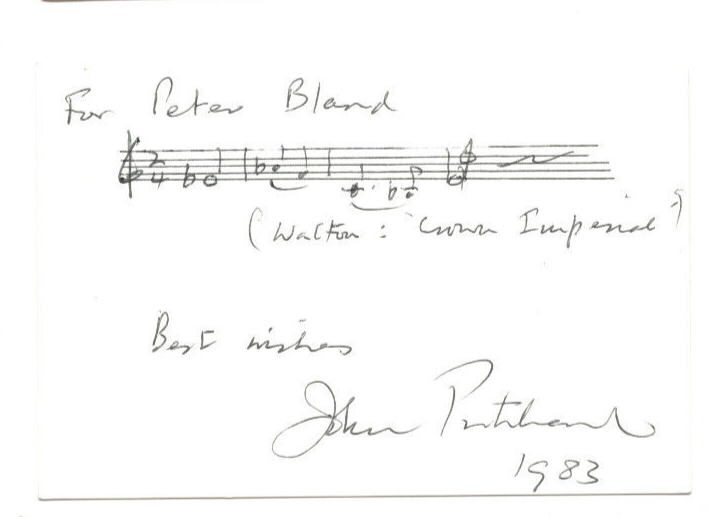 For Peter Bland
2
4
(Walton: "Crown Imperial")
Best wishes
John Pritchard
1983